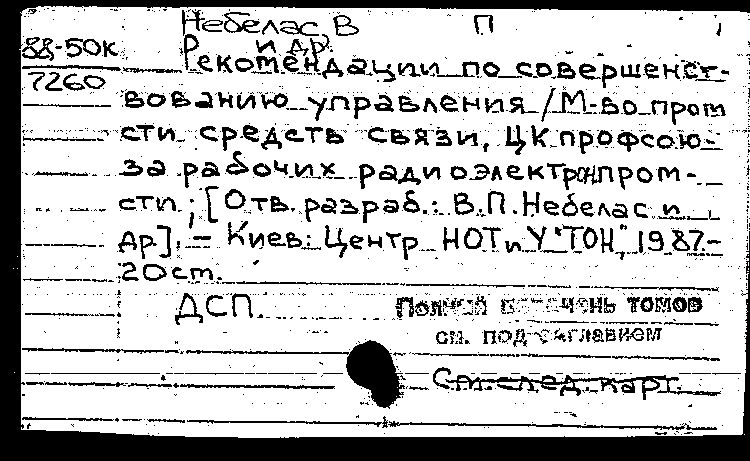 Небелас В П
88-50К и др.
7260 Рекомендации по совершенст-
вованию управления / М-во пром
сти средств связи, ЦК профсою-
за рабочих радиоэлектронпром-
сти ; [Отв. разраб.: В.П. Небелас и
др]. – Киев: Центр НОТ и У "ТОН", 1987.-
20 ст.
ДСП. Полный перечень томов
см. под заглавием
См. след. карт.